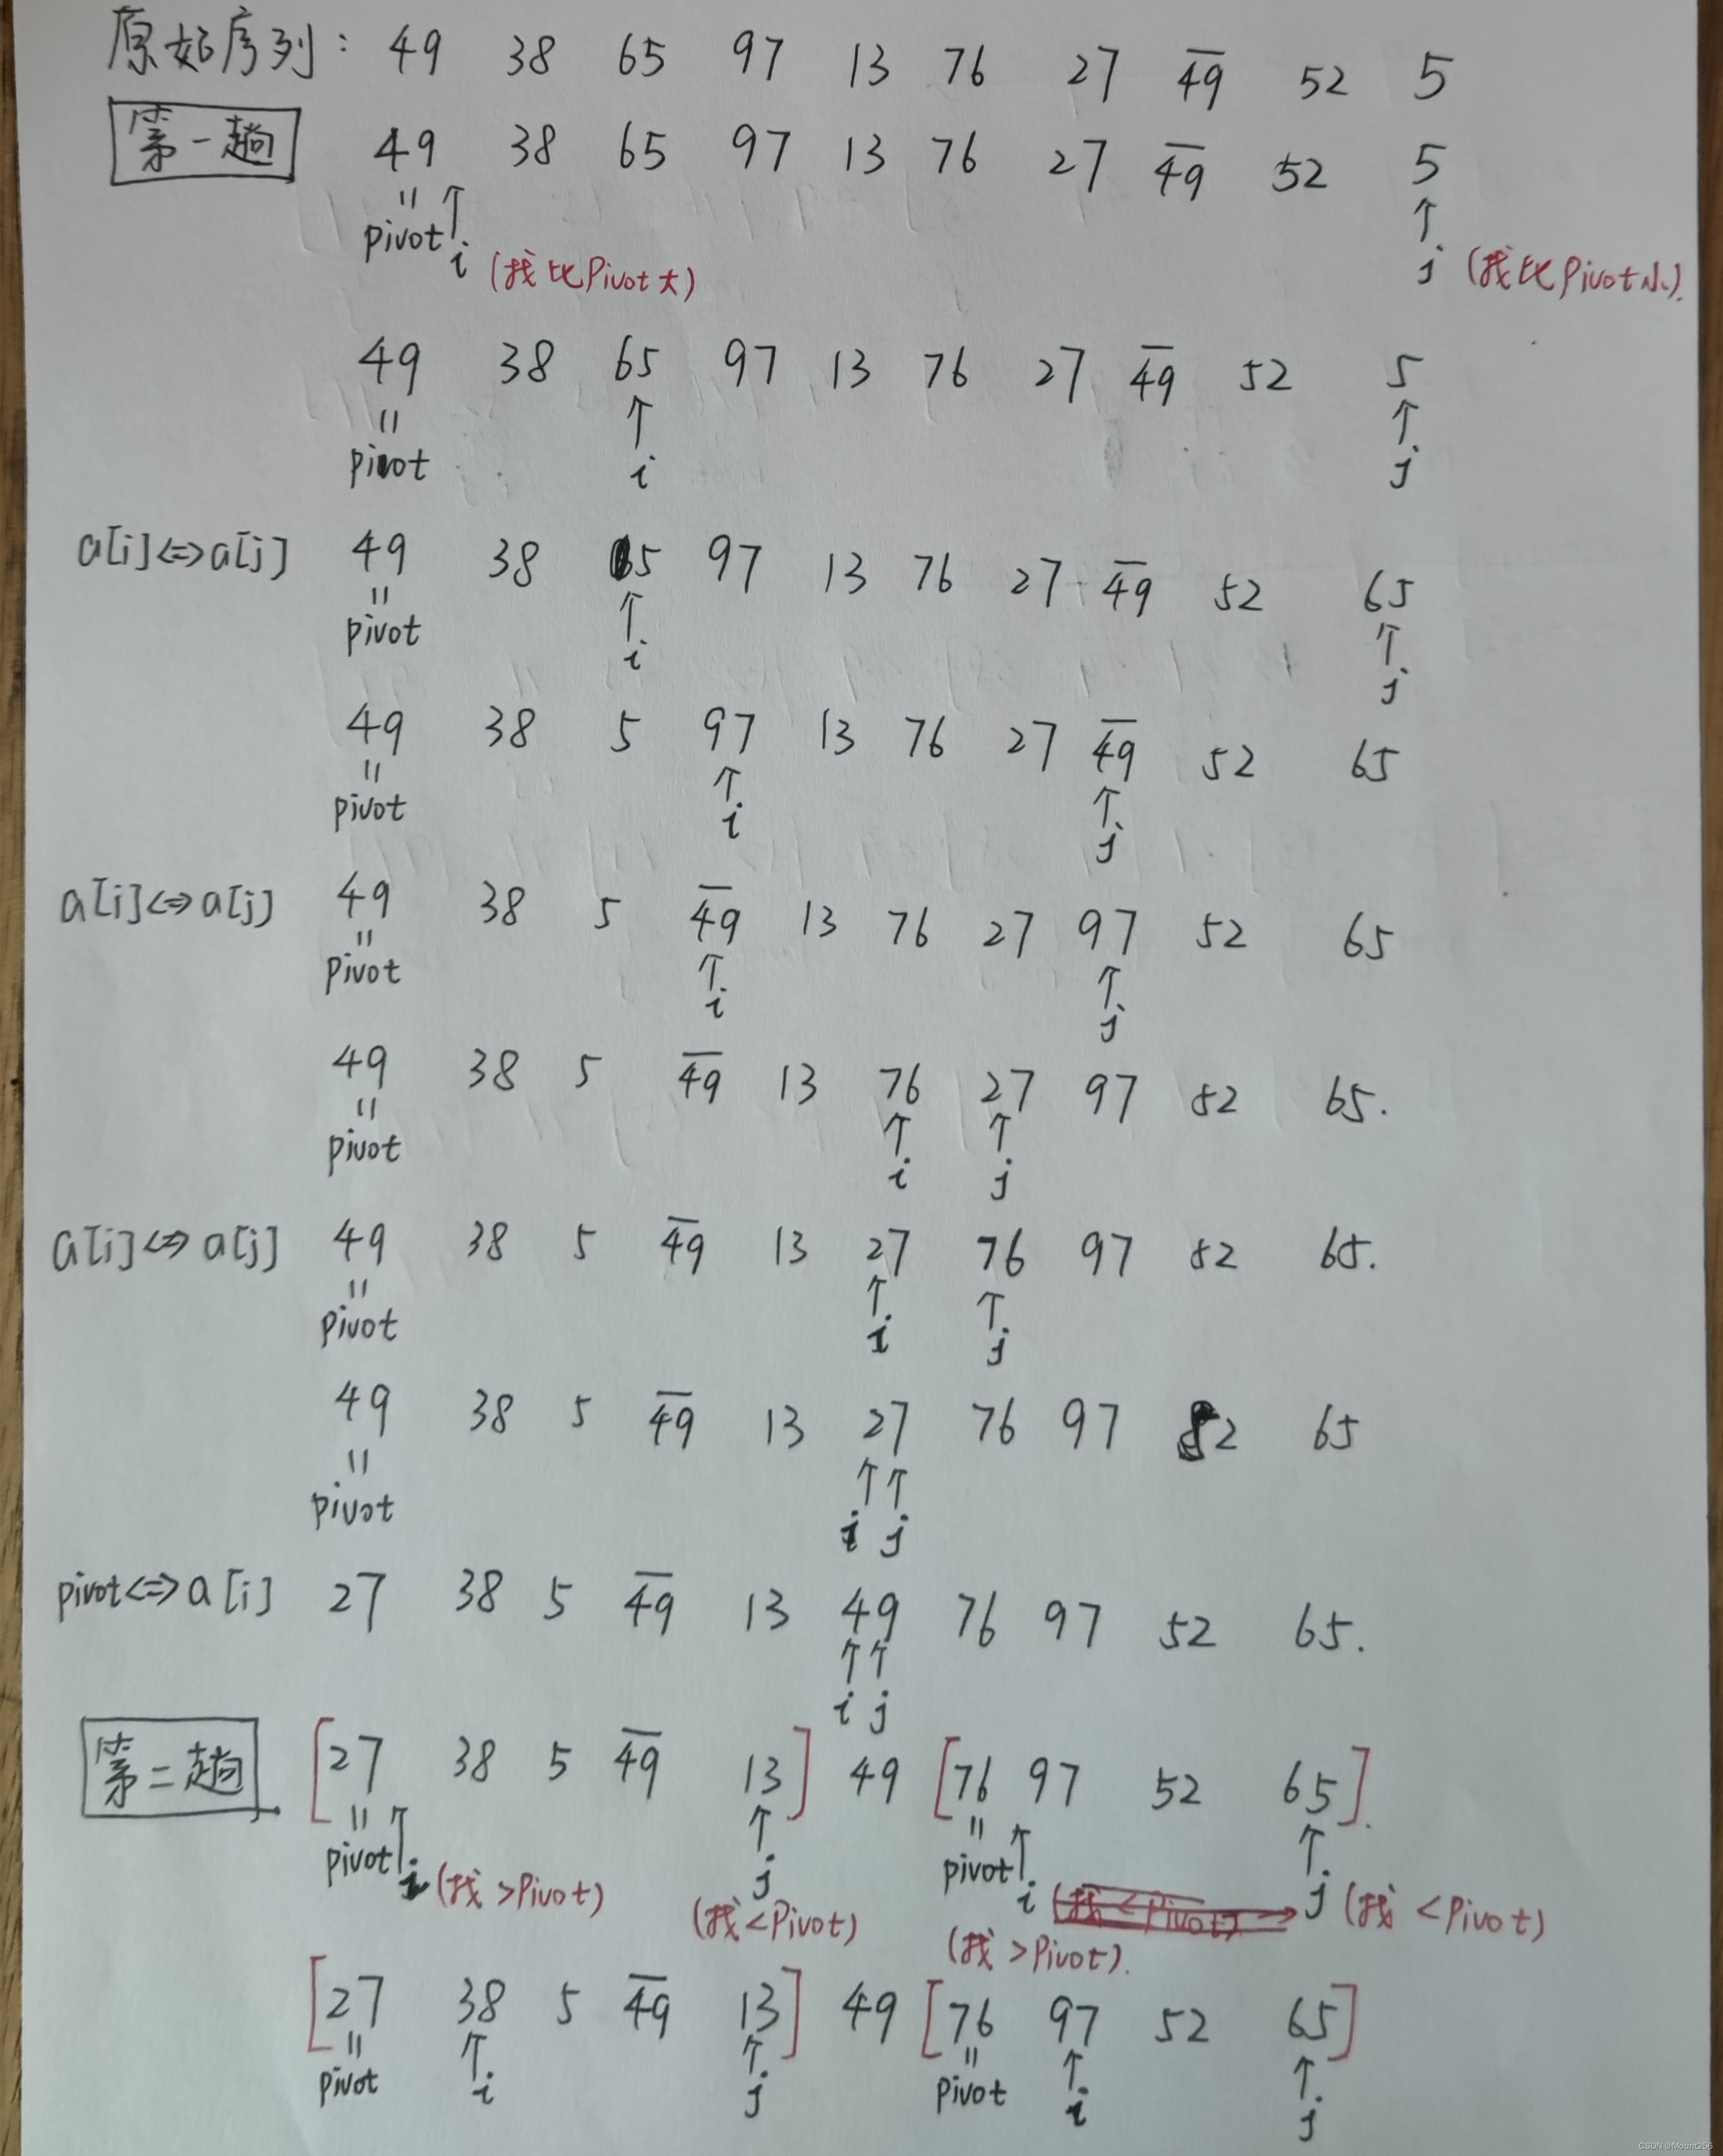 原始序列: 49 38 65 97 13 76 27 4̅9̅ 52 5
第一趟 49 38 65 97 13 76 27 4̅9̅ 52 5
= ↑ ↑
pivot i (找比Pivot大) j (找比Pivot小).
49 38 65 97 13 76 27 4̅9̅ 52 5
= ↑ ↑
pivot i j
a[i]<=>a[j] 49 38 5 97 13 76 27 4̅9̅ 52 65
= ↑ ↑
pivot i j
49 38 5 97 13 76 27 4̅9̅ 52 65
= ↑ ↑
pivot i j
a[i]<=>a[j] 49 38 5 4̅9̅ 13 76 27 97 52 65
= ↑ ↑
pivot i j
49 38 5 4̅9̅ 13 76 27 97 52 65.
= ↑ ↑
pivot i j
a[i]<=>a[j] 49 38 5 4̅9̅ 13 27 76 97 52 65.
= ↑ ↑
pivot i j
49 38 5 4̅9̅ 13 27 76 97 52 65
= ↑ ↑
pivot i j
pivot<=>a[i] 27 38 5 4̅9̅ 13 49 76 97 52 65.
↑ ↑
i j
第二趟 [27 38 5 4̅9̅ 13] 49 [76 97 52 65].
= ↑ ↑ = ↑ ↑
pivot i (找>Pivot) j (找<Pivot) pivot i (找>Pivot). j (找<Pivot)
[27 38 5 4̅9̅ 13] 49 [76 97 52 65]
= ↑ ↑ = ↑ ↑
pivot i j pivot i j
CSDN @Mount256